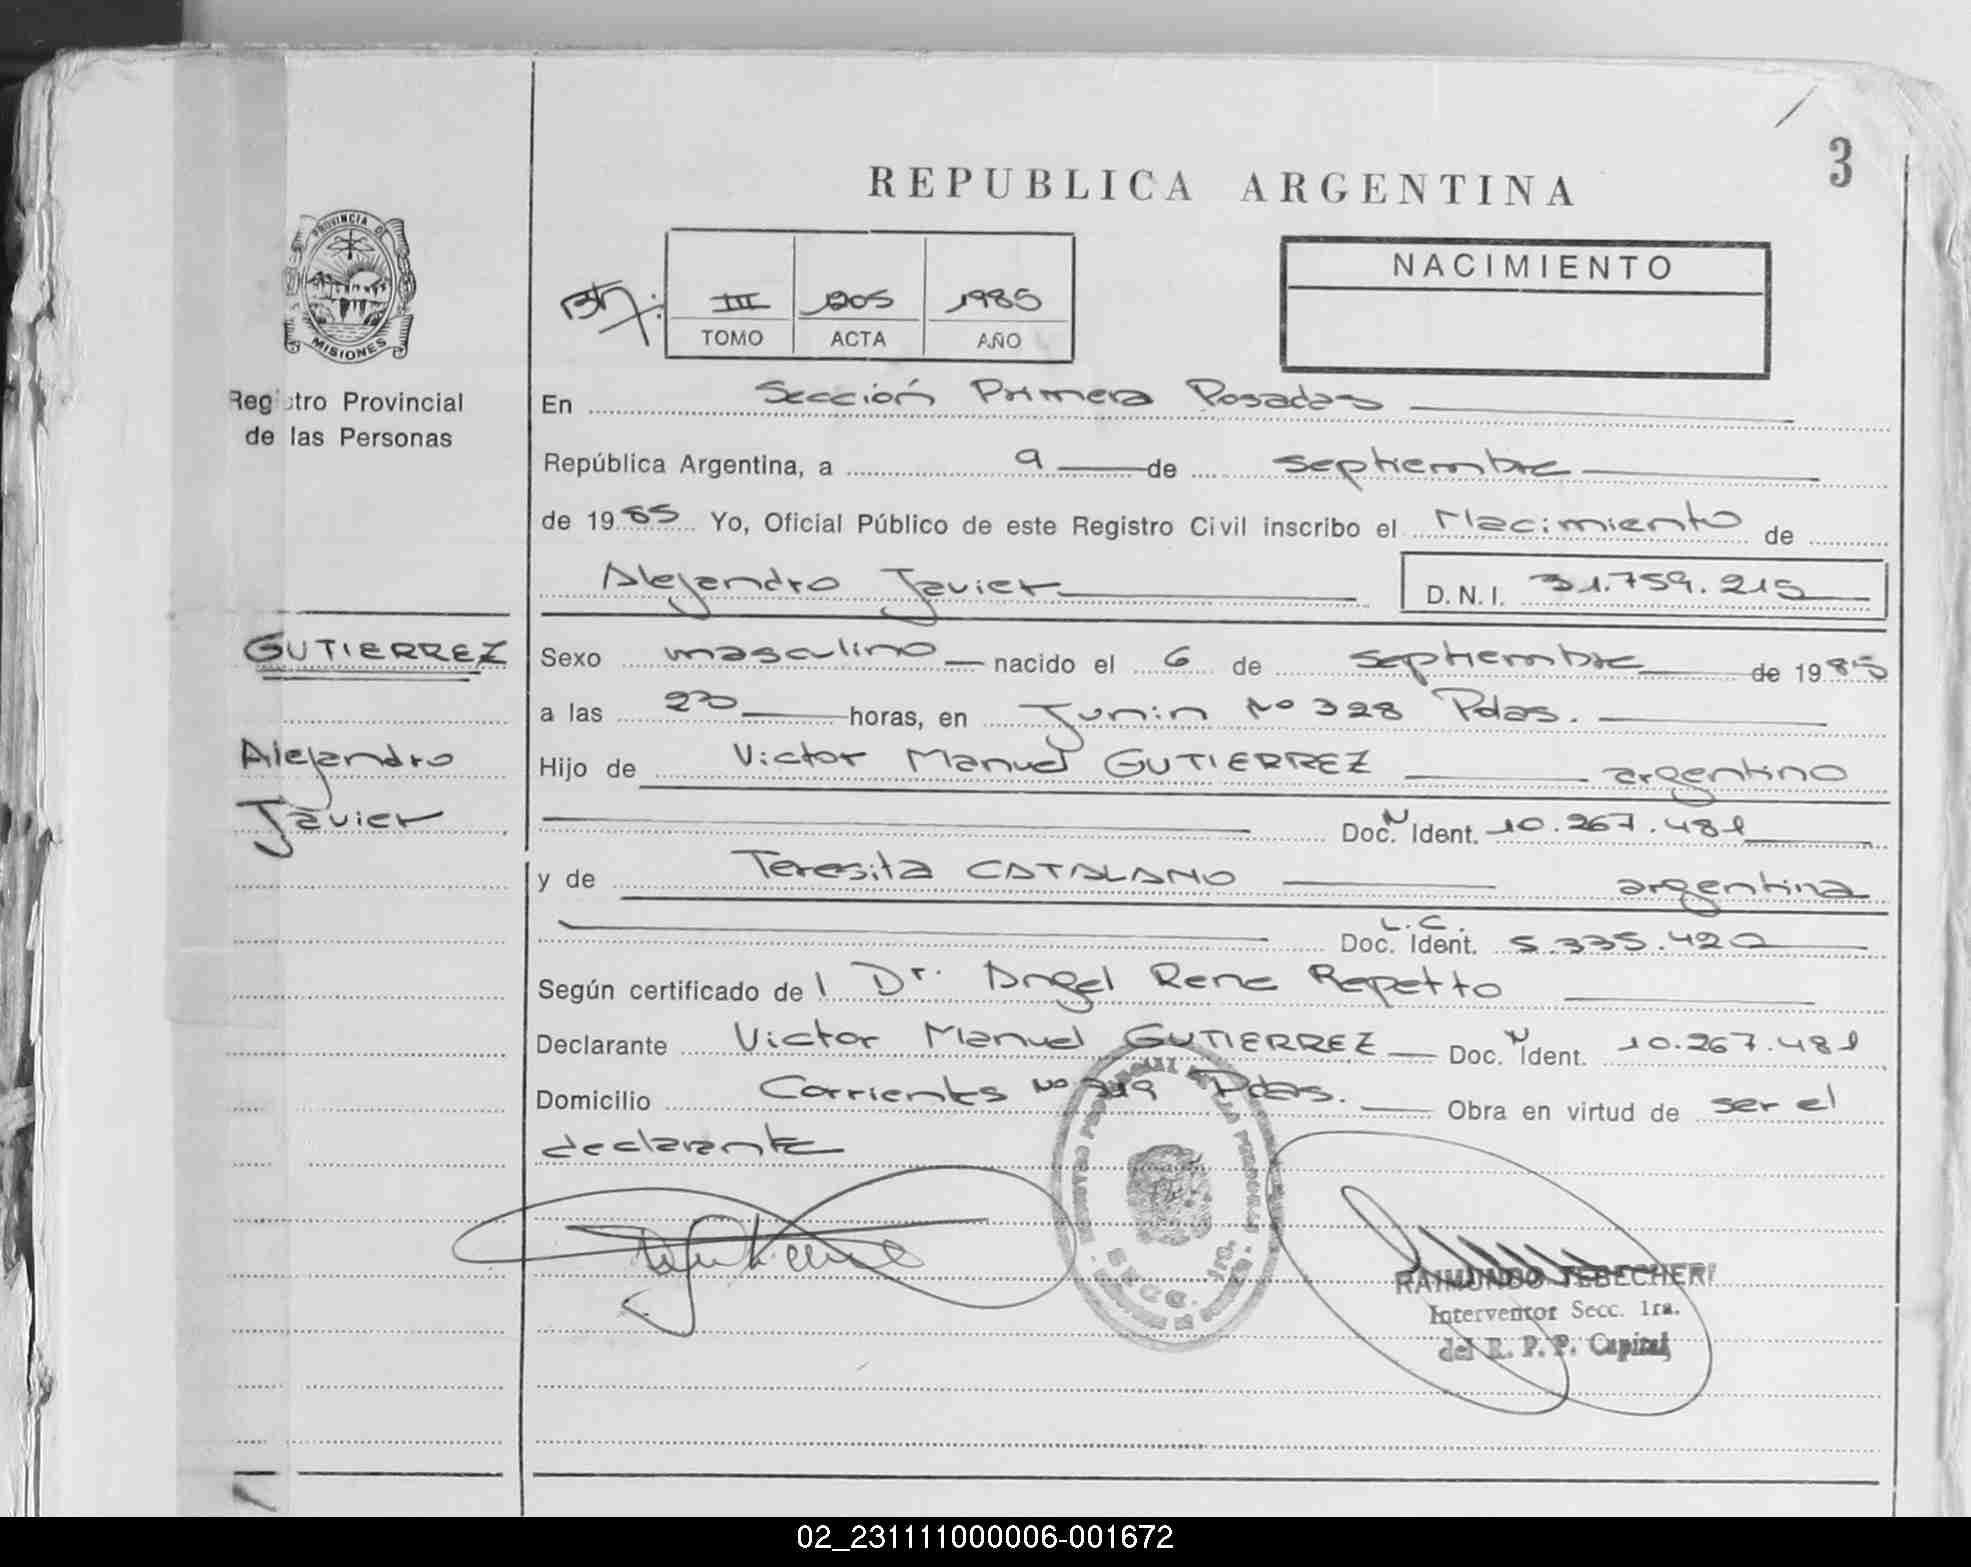 3
REPUBLICA ARGENTINA
PROVINCIA DE
MISIONES
III 1205 1985
TOMO ACTA AÑO
NACIMIENTO
Registro Provincial
de las Personas
En Sección Primera Posadas
República Argentina, a 9 de septiembre
de 1985 Yo, Oficial Público de este Registro Civil inscribo el Nacimiento de
Alejandro Javier D.N.I. 31.759.215
GUTIERREZ
Sexo masculino nacido el 6 de septiembre de 1985
a las 23 horas, en Junin Nº 328 Pdas.
Alejandro
Javier
Hijo de Victor Manuel GUTIERREZ argentino
Doc. N Ident. 10.267.481
y de Teresita CATALANO argentina
L.C.
Doc. Ident. 5.335.420
Según certificado del Dr. Angel Rene Repetto
Declarante Victor Manuel GUTIERREZ Doc. N Ident. 10.267.481
Domicilio Corrientes Nº Pdas. Obra en virtud de ser el
declarante
SECC. 1ra.
RAIMUNDO TEBECHERI
Interventor Secc. 1ra.
del R. P. P. Capital
02_231111000006-001672